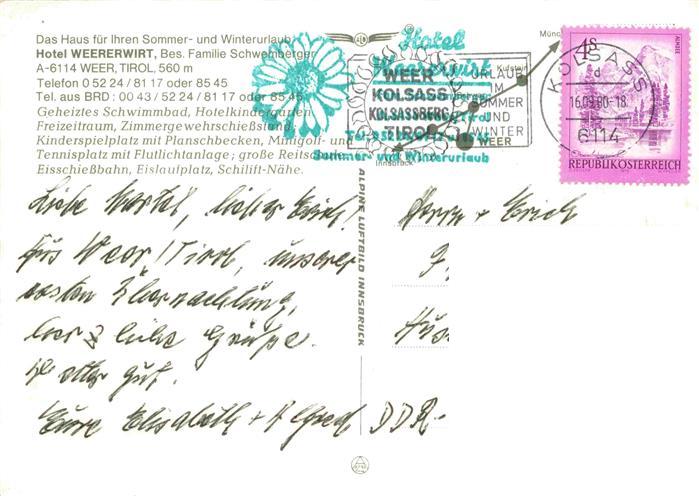 Das Haus für Ihren Sommer- und Winterurlaub
Hotel WEERERWIRT, Bes. Familie Schwemberger
A-6114 WEER, TIROL, 560 m
Telefon 0 52 24 / 81 17 oder 85 45
Tel. aus BRD: 00 43 / 52 24 / 81 17 oder 85 45
Geheiztes Schwimmbad, Hotelkindergarten,
Freizeitraum, Zimmergewehrschießstand,
Kinderspielplatz mit Planschbecken, Minigolf- und
Tennisplatz mit Flutlichtanlage; große Reitschule,
Eisschießbahn, Eislaufplatz, Schilift-Nähe.
Hotel
Weererwirt
Tirol
Sommer- und Winterurlaub
WEER
KOLSASS
KOLSASSBERG
TIROL
URLAUB
IM
SOMMER
UND
WINTER
Kufstein
Innsbruck
WEER
KOLSASS
d
16.09.80-18
6114
4S
ALMSEE
REPUBLIK ÖSTERREICH
Liebe Hertel, lieber Erich!
Aus Weer/Tirol, unserer
ersten Übernachtung,
liebe Grüße.
alles gut.
Eure Elisabeth + Alfred
ALPINE LUFTBILD INNSBRUCK
Herrn + Erich
DDR-